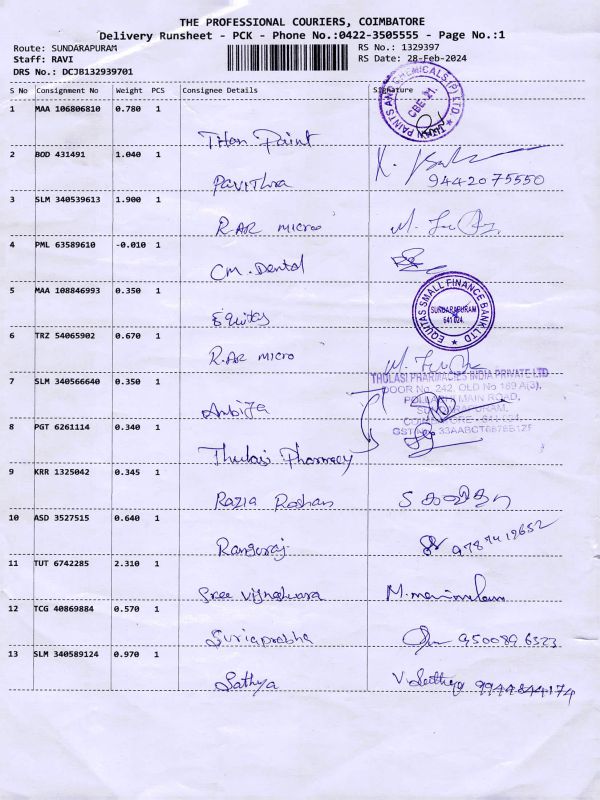 THE PROFESSIONAL COURIERS, COIMBATORE
Delivery Runsheet - PCK - Phone No.:0422-3505555 - Page No.:1
Route: SUNDARAPURAM RS No.: 1329397
Staff: RAVI RS Date: 28-Feb-2024
DRS No.: DCJB132939701
S No Consignment No Weight PCS Consignee Details Signature
1 MAA 106806810 0.780 1
PAINTS AND CHEMICALS (P) LTD.
CBE-21.
Titan Paint
2 BOD 431491 1.040 1
Pavithra 9442075550
3 SLM 340539613 1.900 1
R.AR micro
4 PML 63589610 -0.010 1
CM. Dental
5 MAA 108846993 0.350 1
EQUITAS SMALL FINANCE BANK LTD
SUNDARAPURAM
641 024.
Equitas
6 TRZ 54065902 0.670 1
R.AR micro
THOLASI PHARMACIES INDIA PRIVATE LTD
7 SLM 340566640 0.350 1
DOOR No. 242, OLD No 189 A(3),
MAIN ROAD,
SUNDARAPURAM,
8 PGT 6261114 0.340 1
Thulasi Pharmacy
9 KRR 1325042 0.345 1
Razia Roshan
10 ASD 3527515 0.640 1
Rangaraj 9787412652
11 TUT 6742285 2.310 1
Sree Vijneshwara
12 TCG 40869884 0.570 1
Suriaprabha 9500896323
13 SLM 340589124 0.970 1
Sathya V. Sathya 9944844174